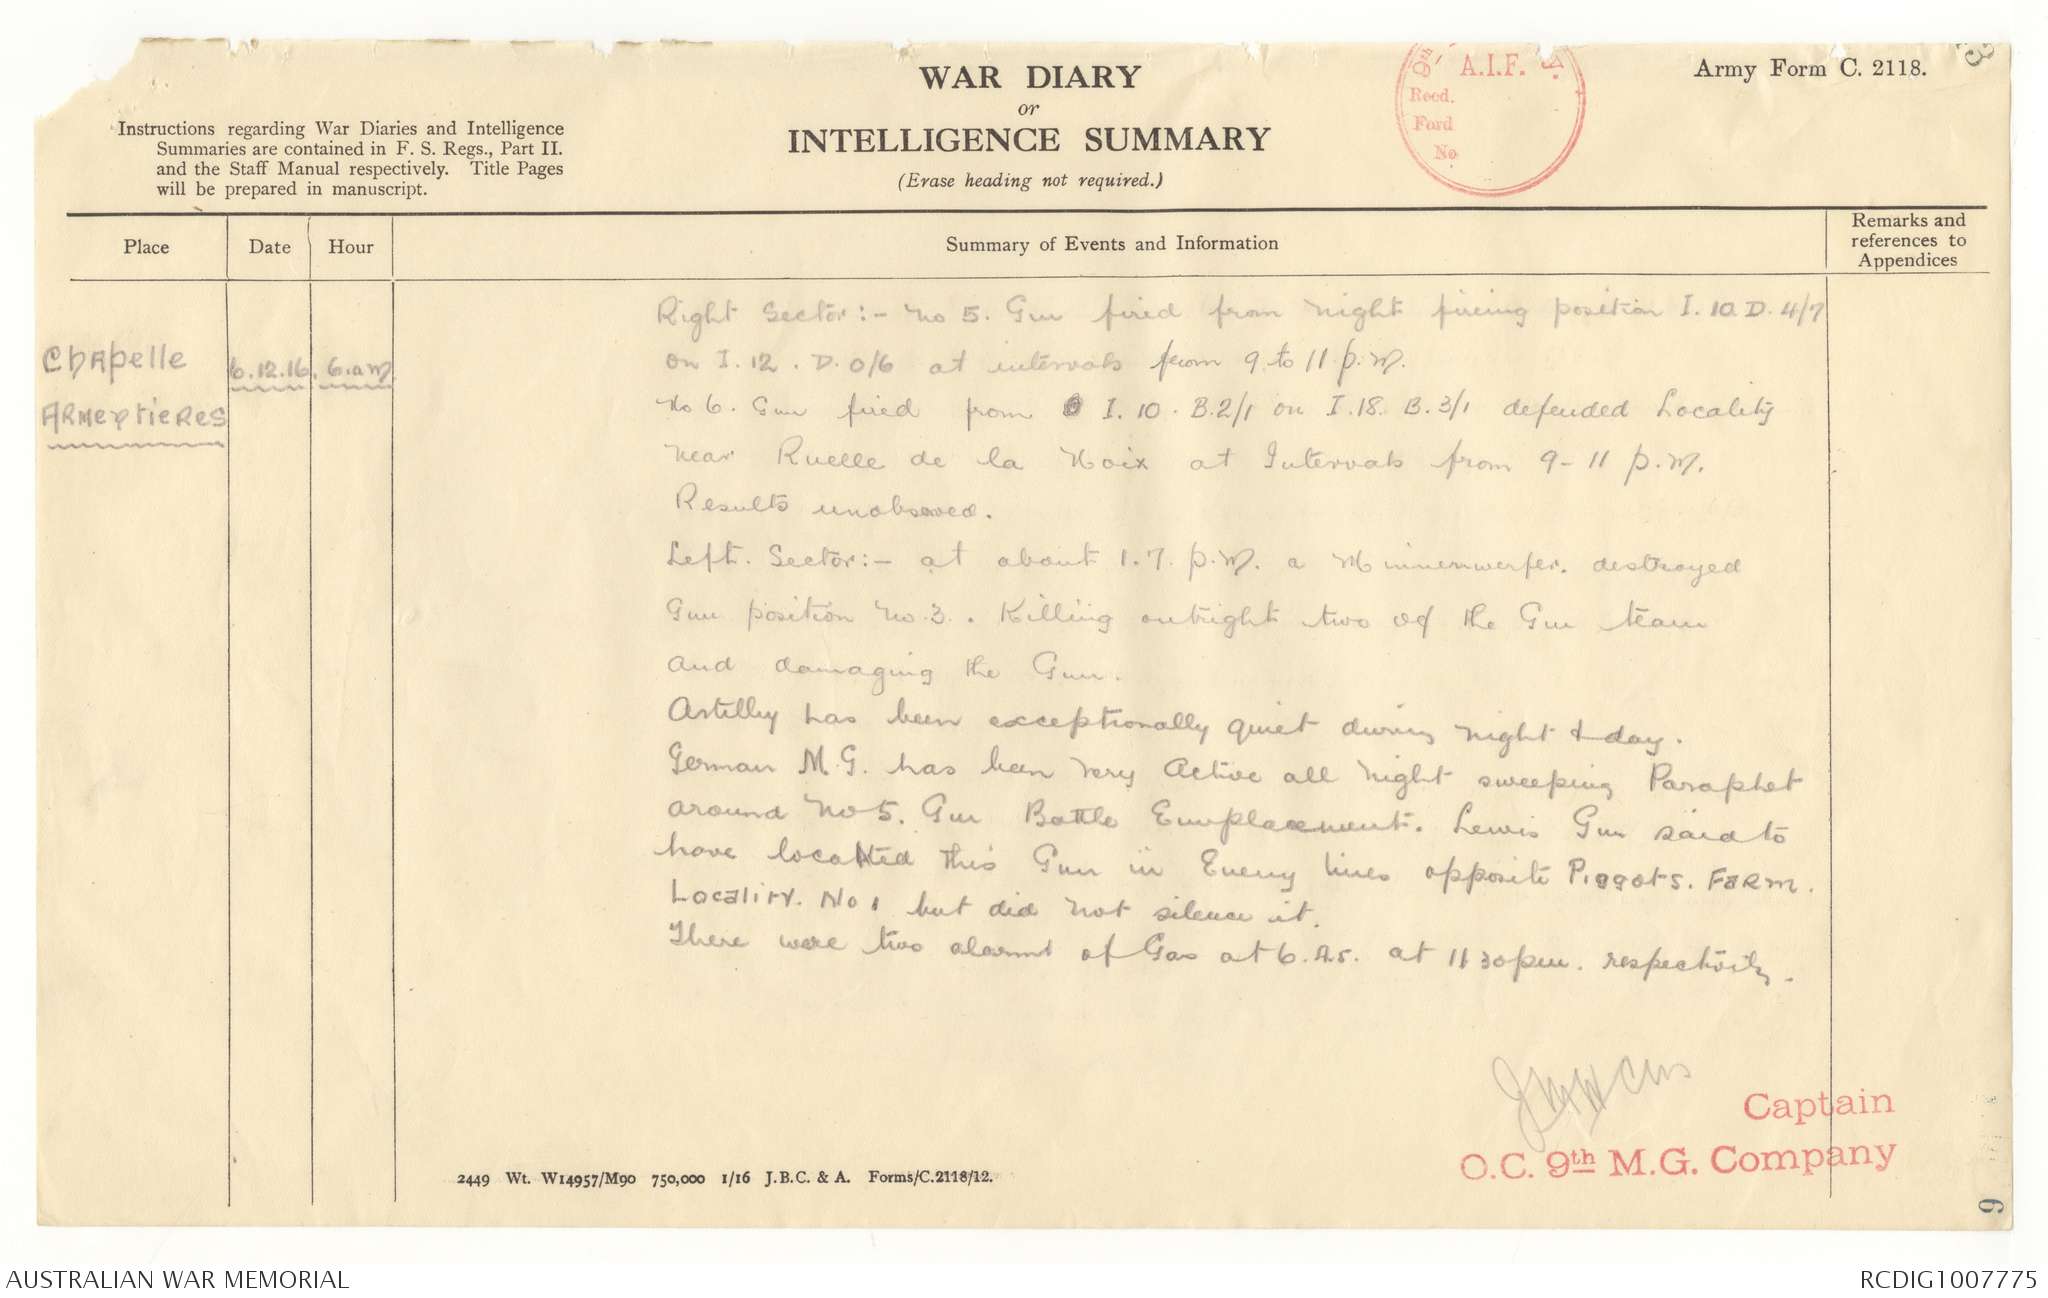 WAR DIARY
or
INTELLIGENCE SUMMARY
(Erase heading not required.)
Army Form C. 2118.
Instructions regarding War Diaries and Intelligence
Summaries are contained in F. S. Regs., Part II.
and the Staff Manual respectively. Title Pages
will be prepared in manuscript.
9th A.I.F.
Recd.
Ford
No
Place
Date
Hour
Summary of Events and Information
Remarks and
references to
Appendices
Chapelle
Armentieres
6.12.16. 6.a.m
Right Sector:- No 5. Gun fired from night firing position I.10.D.4/7
on I.12.D.0/6 at intervals from 9 to 11 p.m.
No 6. Gun fired from I.10.B.2/1 on I.18.B.3/1 defended Locality
near Ruelle de la Noix at Intervals from 9-11 p.m.
Results unobserved.
Left. Sector:- at about 1.7. p.m. a Minnenwerfer. destroyed
Gun position No.3. Killing outright two of the Gun team
and damaging the Gun.
Artillry has been exceptionally quiet during night & day.
German M.G. has been very Active all night sweeping Paraphet
around No 5. Gun Battle Emplacement. Lewis Gun said to
have located this Gun in Enemy lines opposite Piggots. Farm.
Locality. No 1 but did not silence it.
There were two alarms of Gas at 6. at 11 30 pm. respectivily.
Captain
O.C. 9th M.G. Company
2449 Wt. W14957/M90 750,000 1/16 J.B.C. & A. Forms/C.2118/12.
9
AUSTRALIAN WAR MEMORIAL
RCDIG1007775